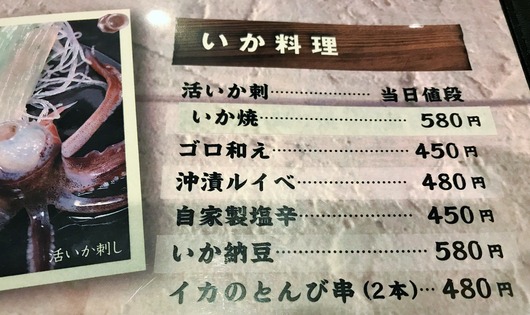 いか料理
活いか刺……………… 当日値段
いか焼……………………… 580円
ゴロ和え…………………… 450円
沖漬ルイベ………………… 480円
自家製塩辛………………… 450円
いか納豆…………………… 580円
イカのとんび串(2本)… 480円
活いか刺し